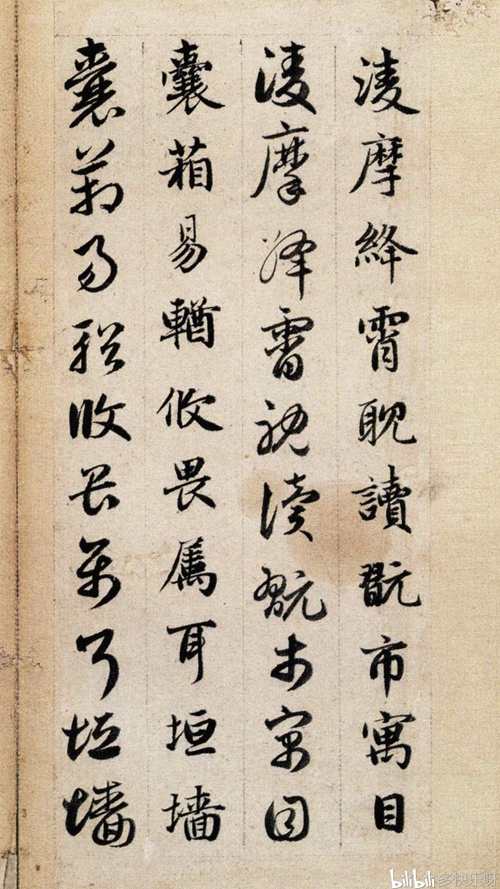 淩摩絳霄耽讀翫市寓目
淩摩絳霄耽讀翫市寓目
囊箱易輶攸畏屬耳垣墻
囊箱易輶攸畏屬耳垣墻
bilibili